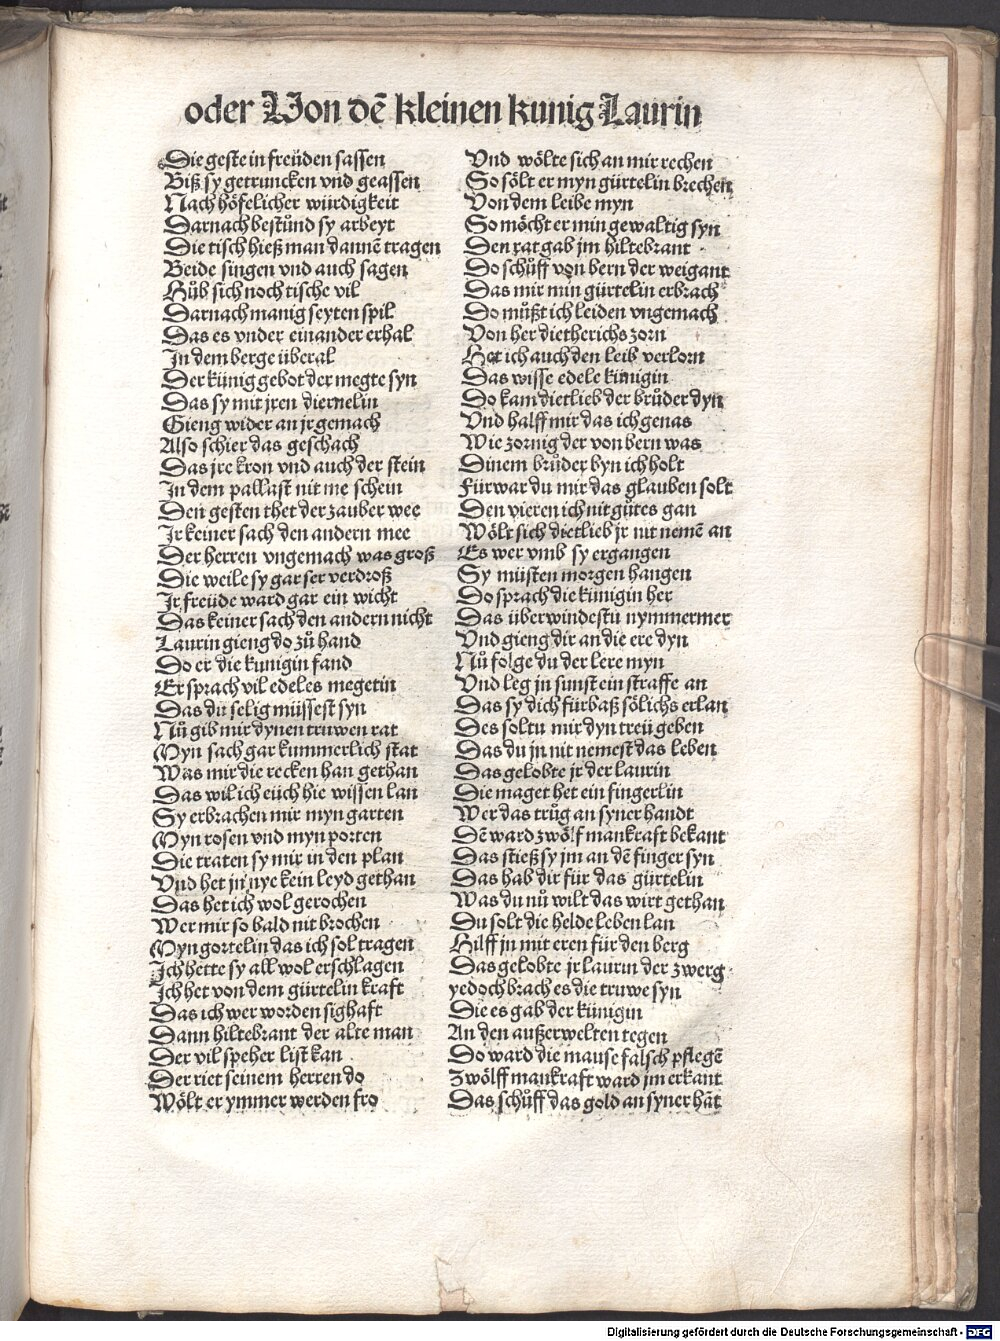 oder Von dē kleinen kunig Laurin
Die geste in freüden sassen
Biß sy getruncken vnd geassen
Nach höfelicher würdigkeit
Darnach bestůnd sy arbeyt
Die tisch hieß man dannē tragen
Beide singen vnd auch sagen
Hůb sich noch tische vil
Darnach manig seyten spil
Das es vnder einander erhal
In dem berge überal
Der künig gebot der megte syn
Das sy mit jren diernelin
Gieng wider an jr gemach
Also schier das geschach
Das jre kron vnd auch der stein
In dem pallast nit me schein
Den gesten thet der zauber wee
Ir keiner sach den andern mee
Der herren vngemach was groß
Die weile sy gar ser verdroß
Ir freüde ward gar ein wicht
Das keiner sach den andern nicht
Laurin gieng do zů hand
Do er die kunigin fand
Er sprach vil edeles megetin
Das du selig müssest syn
Nů gib mir dynen truwen rat
Myn sach gar kummerlich stat
Was mir die recken han gethan
Das wil ich eüch hie wissen lan
Sy erbrachen mir myn garten
Myn rosen vnd myn porten
Die traten sy mir in den plan
Vnd het jn nye kein leyd gethan
Das het ich wol gerochen
Wer mir so bald nit brochen
Myn gortelin das ich sol tragen
Ich hette sy all wol erschlagen
Ich het von dem gürtelin kraft
Das ich wer worden sighaft
Dann hiltebrant der alte man
Der vil speher list kan
Der riet seinem herren do
Wölt er ymmer werden fro
Vnd wölte sich an mir rechen
So sölt er myn gürtelin brechen
Von dem leibe myn
So möcht er min gewaltig syn
Den rat gab jm hiltebrant
Do schůff von bern der weigant
Das mir min gürtelin erbrach
Do můßt ich leiden vngemach
Von her dietherichs zorn
Het ich auch den leib verlorn
Das wisse edele künigin
Do kam dietlieb der brůder dyn
Vnd halff mir das ich genas
Wie zornig der von bern was
Dinem brůder byn ich holt
Fürwar du mir das glauben solt
Den vieren ich nit gůtes gan
Wölt sich dietlieb jr nit nemē an
Es wer vmb sy ergangen
Sy müsten morgen hangen
Do sprach die künigin her
Das überwindestu nymmermer
Vnd gieng dir an die ere dyn
Nů folge du der lere myn
Vnd leg jn sunst ein straffe an
Das sy dich fürbaß sölichs erlan
Des soltu mir dyn treü geben
Das du jn nit nemest das leben
Das gelobte jr der laurin
Die maget het ein fingerlin
Wer das trůg an syner handt
Dē ward zwölf mankraft bekant
Das stieß sy jm an dē finger syn
Das hab dir für das gürtelin
Was du nů wilt das wirt gethan
Du solt die helde leben lan
Hilff jn mit eren für den berg
Das gelobte jr laurin der zwerg
yedoch brach es die truwe syn
Die es gab der künigin
An den außerwelten tegen
Do ward die mause falsch pflegē
Zwölff mankraft ward jm erkant
Das schůff das gold an syner hāt
Digitalisierung gefördert durch die Deutsche Forschungsgemeinschaft - DFG